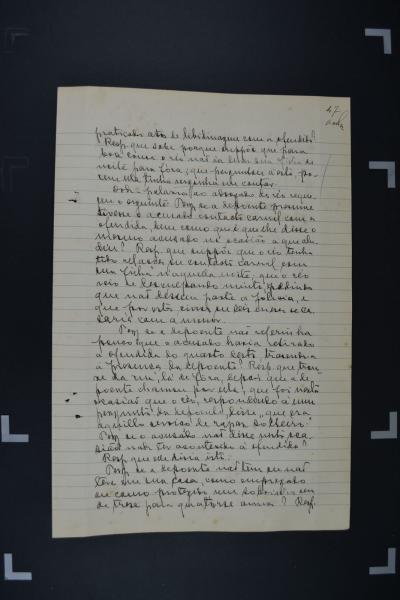 47
praticado atos de libidinagem com a ofendida?
Resp. que sabe porque suppõe que para
boa cousa o réo não ia levar sua filha de
noite para fóra; que perguntou a esta, po-
rem ella tinha vergonha em contar.
palavra ao advogado do réo reque-
reu o seguinte: Perg. se a depoente
o acusado contacto carnal com a
ofendida, bem como o que lhe disse o
mesmo acusado na ocasião a que
Resp. que suppõe que o réo tenha
tido relações ou contacto carnal com
sua filha n'aquella noite; que o réo
veio se desculpando muito, pedindo
que não dessem parte á policia, e
que por vezes
com a menor.
Perg. se a depoente não referiu ha
pouco que o acusado havia retirado
a ofendida do quarto desta,
á presença da depoente? Resp. que trou-
xe da rua, lá de fóra, depois que a de-
poente chamou por ella, que foi nesta
ocasião que o réo, respondendo á uma
pergunta da depoente, disse "que era
aquillo serviço de rapaz solteiro."
Perg. se o acusado não disse nesta oca-
sião não ter acontecido á ofendida?
Resp. que elle dizia isto.
Perg. se a depoente não tem ou não
teve em sua casa, como empregado
ou como protegido um
de treze para quatorse annos? Resp.